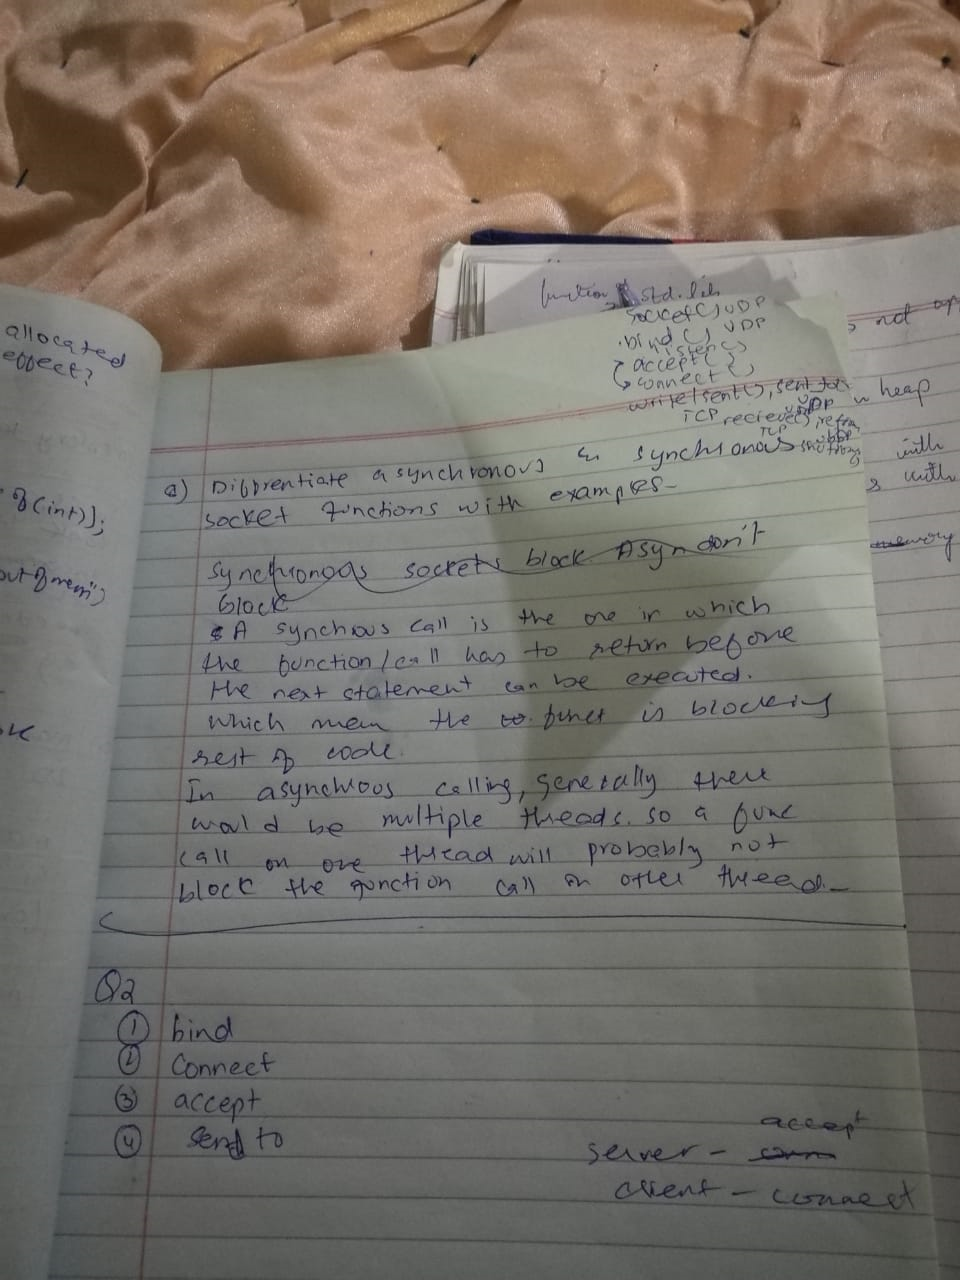 allocated
effect?
function std.lib
socket() UDP
bind() UDP
listen()
accept()
connect()
write/sent(), sent to
UDP
TCP recieve()
TCP UDP
not
heap
with
with
memory
a) Diffrentiate asynchronous & synchronous
socket functions with examples-
Synchronous sockets block Asyn don't
block
A synchous call is the one in which
the function/call has to return before
the next statement can be executed.
which mean the funct is blocking
rest of code.
In asynchous calling, generally there
would be multiple threads. so a func
call on one thread will probably not
block the function call on other thread.-
of (int));
out of mem")
Q2
① bind
② Connect
③ accept
④ Send to
accept
server -
client - connect